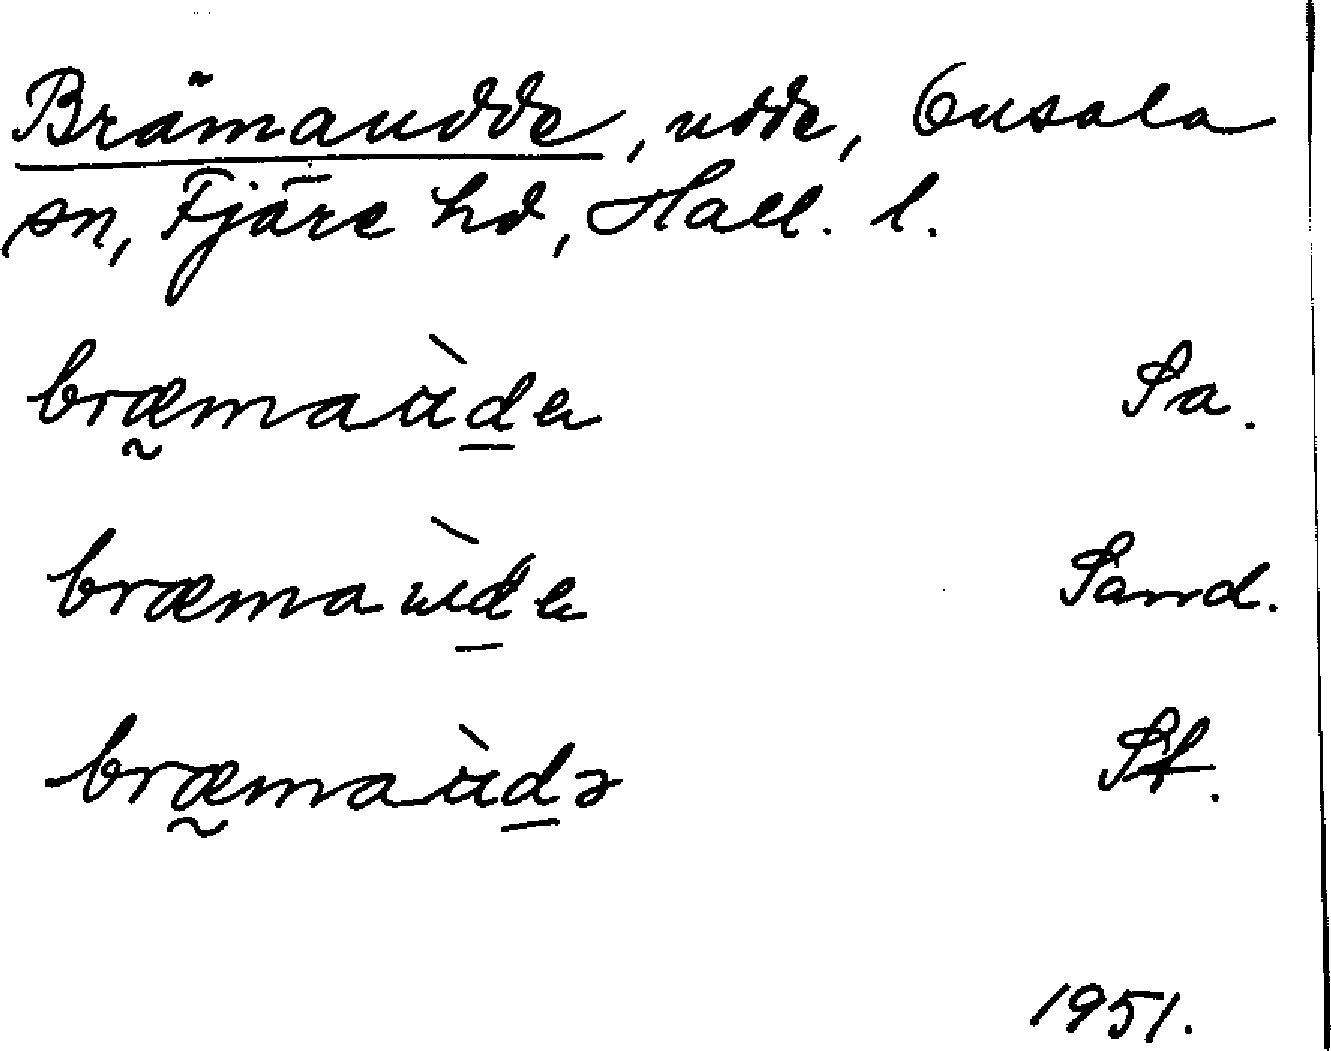 Brämaudde, udde, Onsala
sn, Fjäre hd, Hall. l.
bræ̰maùd̲ɐ Sa.
bræmaùd̲ɐ Sand.
bræ̰maùd̲ə St.
1951.